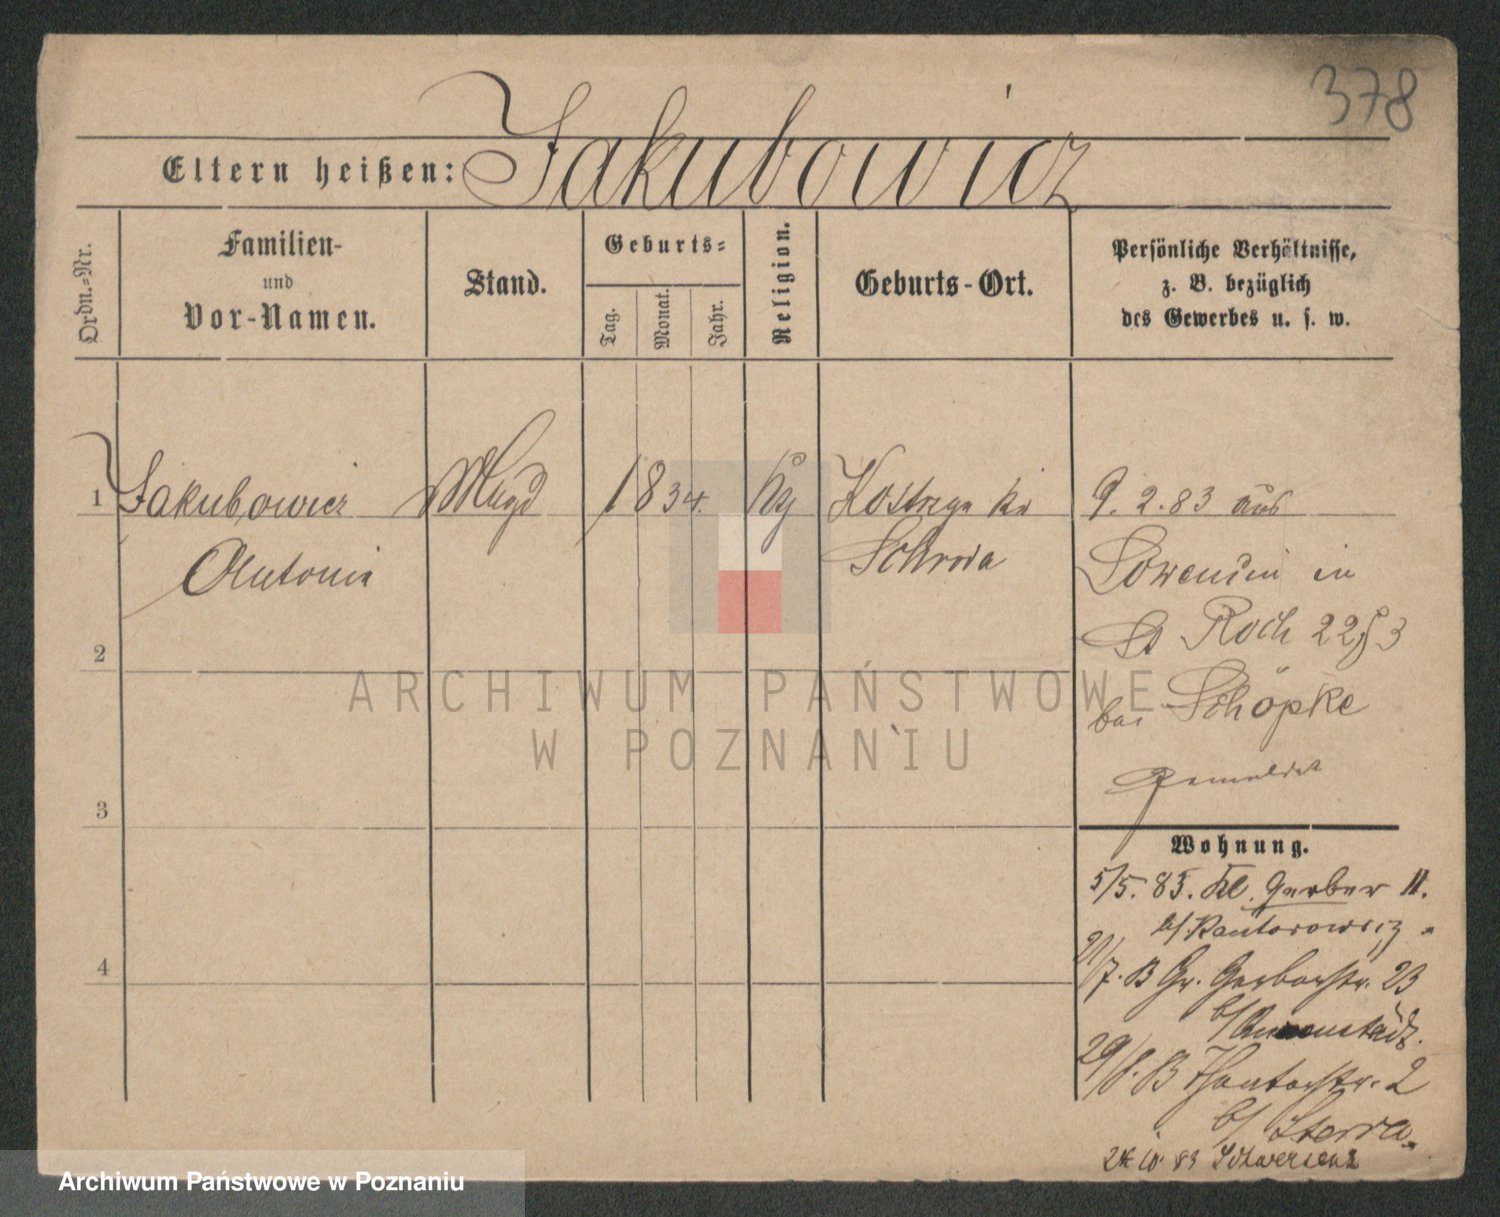 378
Eltern heißen: Jakubowicz
Ordn.-Nr.
Familien-
und
Vor-Namen.
Stand.
Geburts-
Tag.
Monat.
Jahr.
Religion.
Geburts-Ort.
Persönliche Verhältnisse,
z. B. bezüglich
des Gewerbes u. s. w.
1 Jakubowicz Magd 1834. Kostrzyn
Antonie Schroda
9. 2. 83 aus
in
St Roch
bei Schöpke
gemeldet
2
3
4
Wohnung.
5/5. 83. Kl. Gerber 11.
b/ Kantorowicz.
21/7. 83 Gr. Gerberstr. 23
b/
29/8. 83 2
b/
24 10 83 Schwersenz
ARCHIWUM PAŃSTWOWE
W POZNANIU
Archiwum Państwowe w Poznaniu